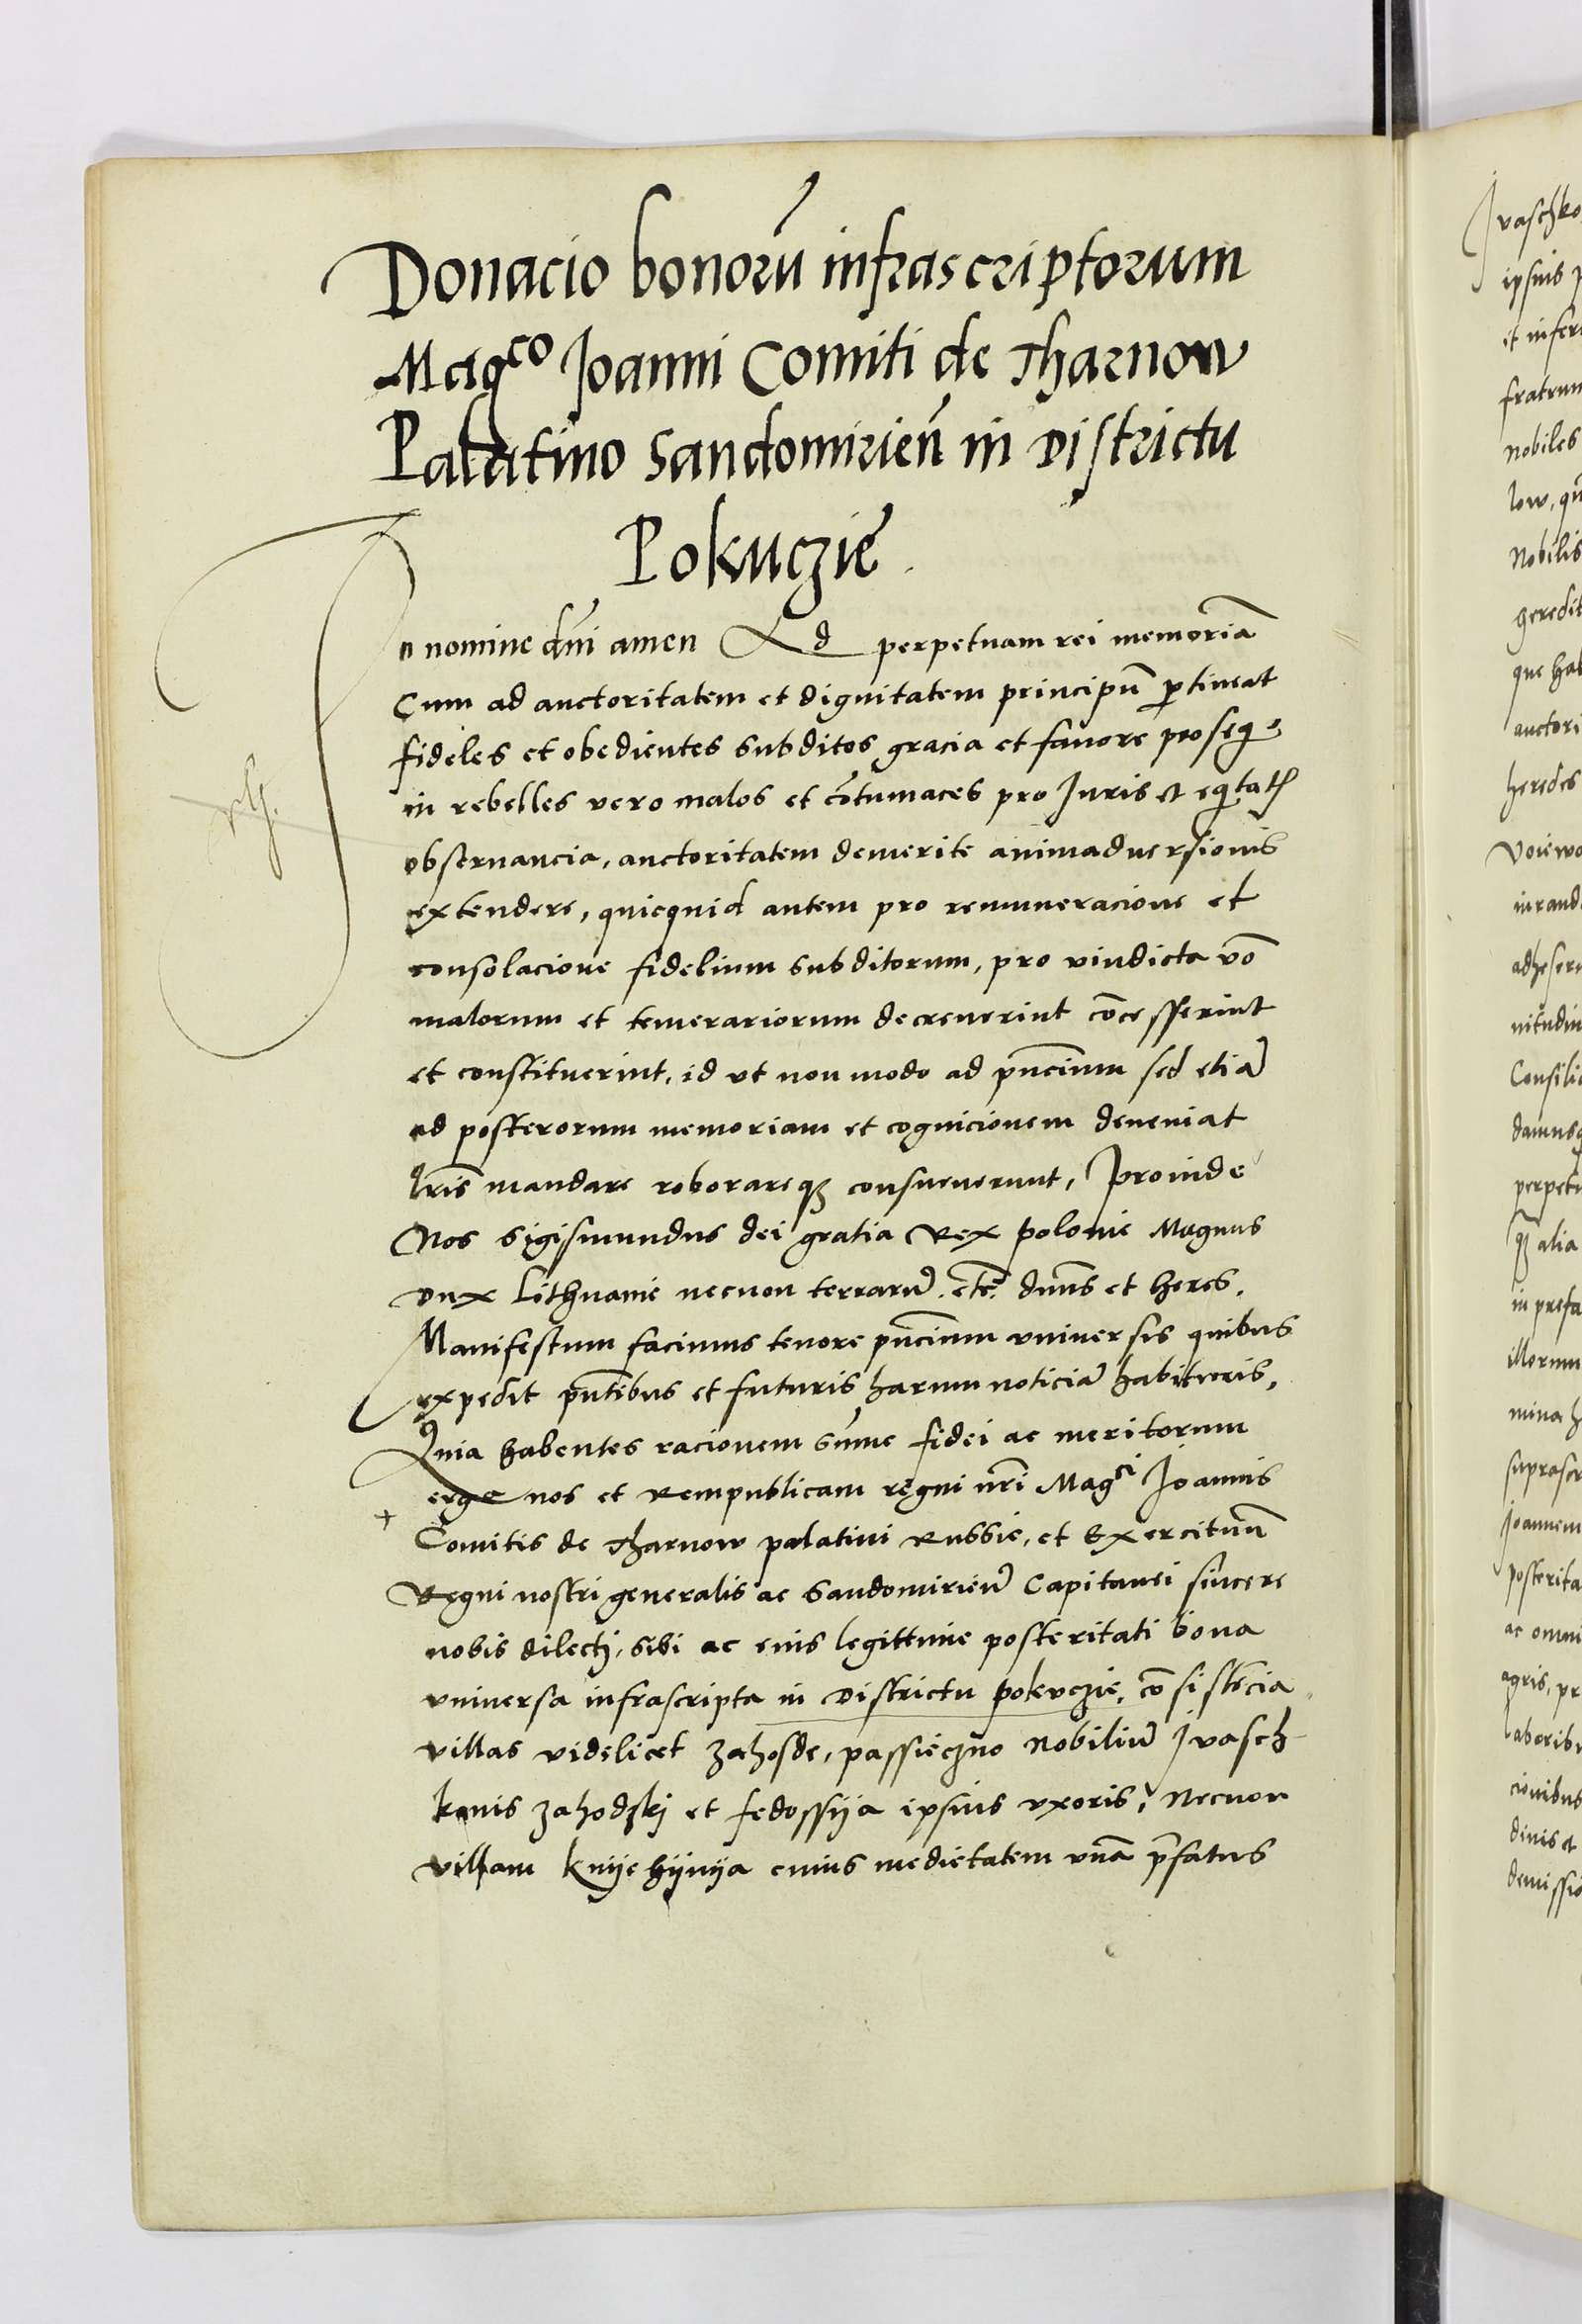 Donacio bonorū infrascriptorum
Magco Joanni Comiti de Tharnow
Palatino Sandomirien̄ in Districtu
Pokuczie.
In nomine dn̄i amen Ad perpetuam rei memoriā
Cum ad auctoritatem et dignitatem principū ꝑtineat
fideles et obedientes subditos gracia et fauore proseq
in rebelles vero malos et cōtumaces pro Juris et eqͥtatꝭ
obseruancia, auctoritatem demerite animaduersionis
extendere, quicquid autem pro remuneracione et
consolacione fidelium subditorum, pro vindicta vō
malorum et temerariorum decreuerint cōcesserint
et constituerint, id vt non modo ad pn̄cium sed etiā
ad posterorum memoriam et cognicionem deueniat
lr̄is mandare roborareqꝫ consueuerunt, Proinde
Nos Sigismundus dei gratia Rex Polonie Magnus
Dux Lithuanie necnon terrarū. etc̄. dn̄us et heres.
Manifestum facimus tenore pn̄cium vniuersis quibus
expedit pn̄tibus et futuris, harum noticiā habituris.
Quia habentes racionem sūme fidei ac meritorum
erga nos et Rempublicam regni nr̄i Magci Joannis
+ Comitis de Tharnow palatini Russie, et Exercituū
Regni nostri generalis ac Sandomirien̄ Capitanei sincere
nobis dilectj, sibi ac eius legittime posteritati bona
vniuersa infrascripta in Districtu pokvczie, cōsistēcia
villas videlicet zahosde, passieczno Nobiliū Jvasch-
konis zahodzkj et fedossija ipsius vxoris, Necnon
villam knijehijnija cuius medietatem vnā p̄fatus
Jvaschko
ipsius
fratrum
nobiles
Nobilis
auctori
heredes
Consili
alia
illorum
suprascr
Joannem
posterita
ac omni
agris, pr